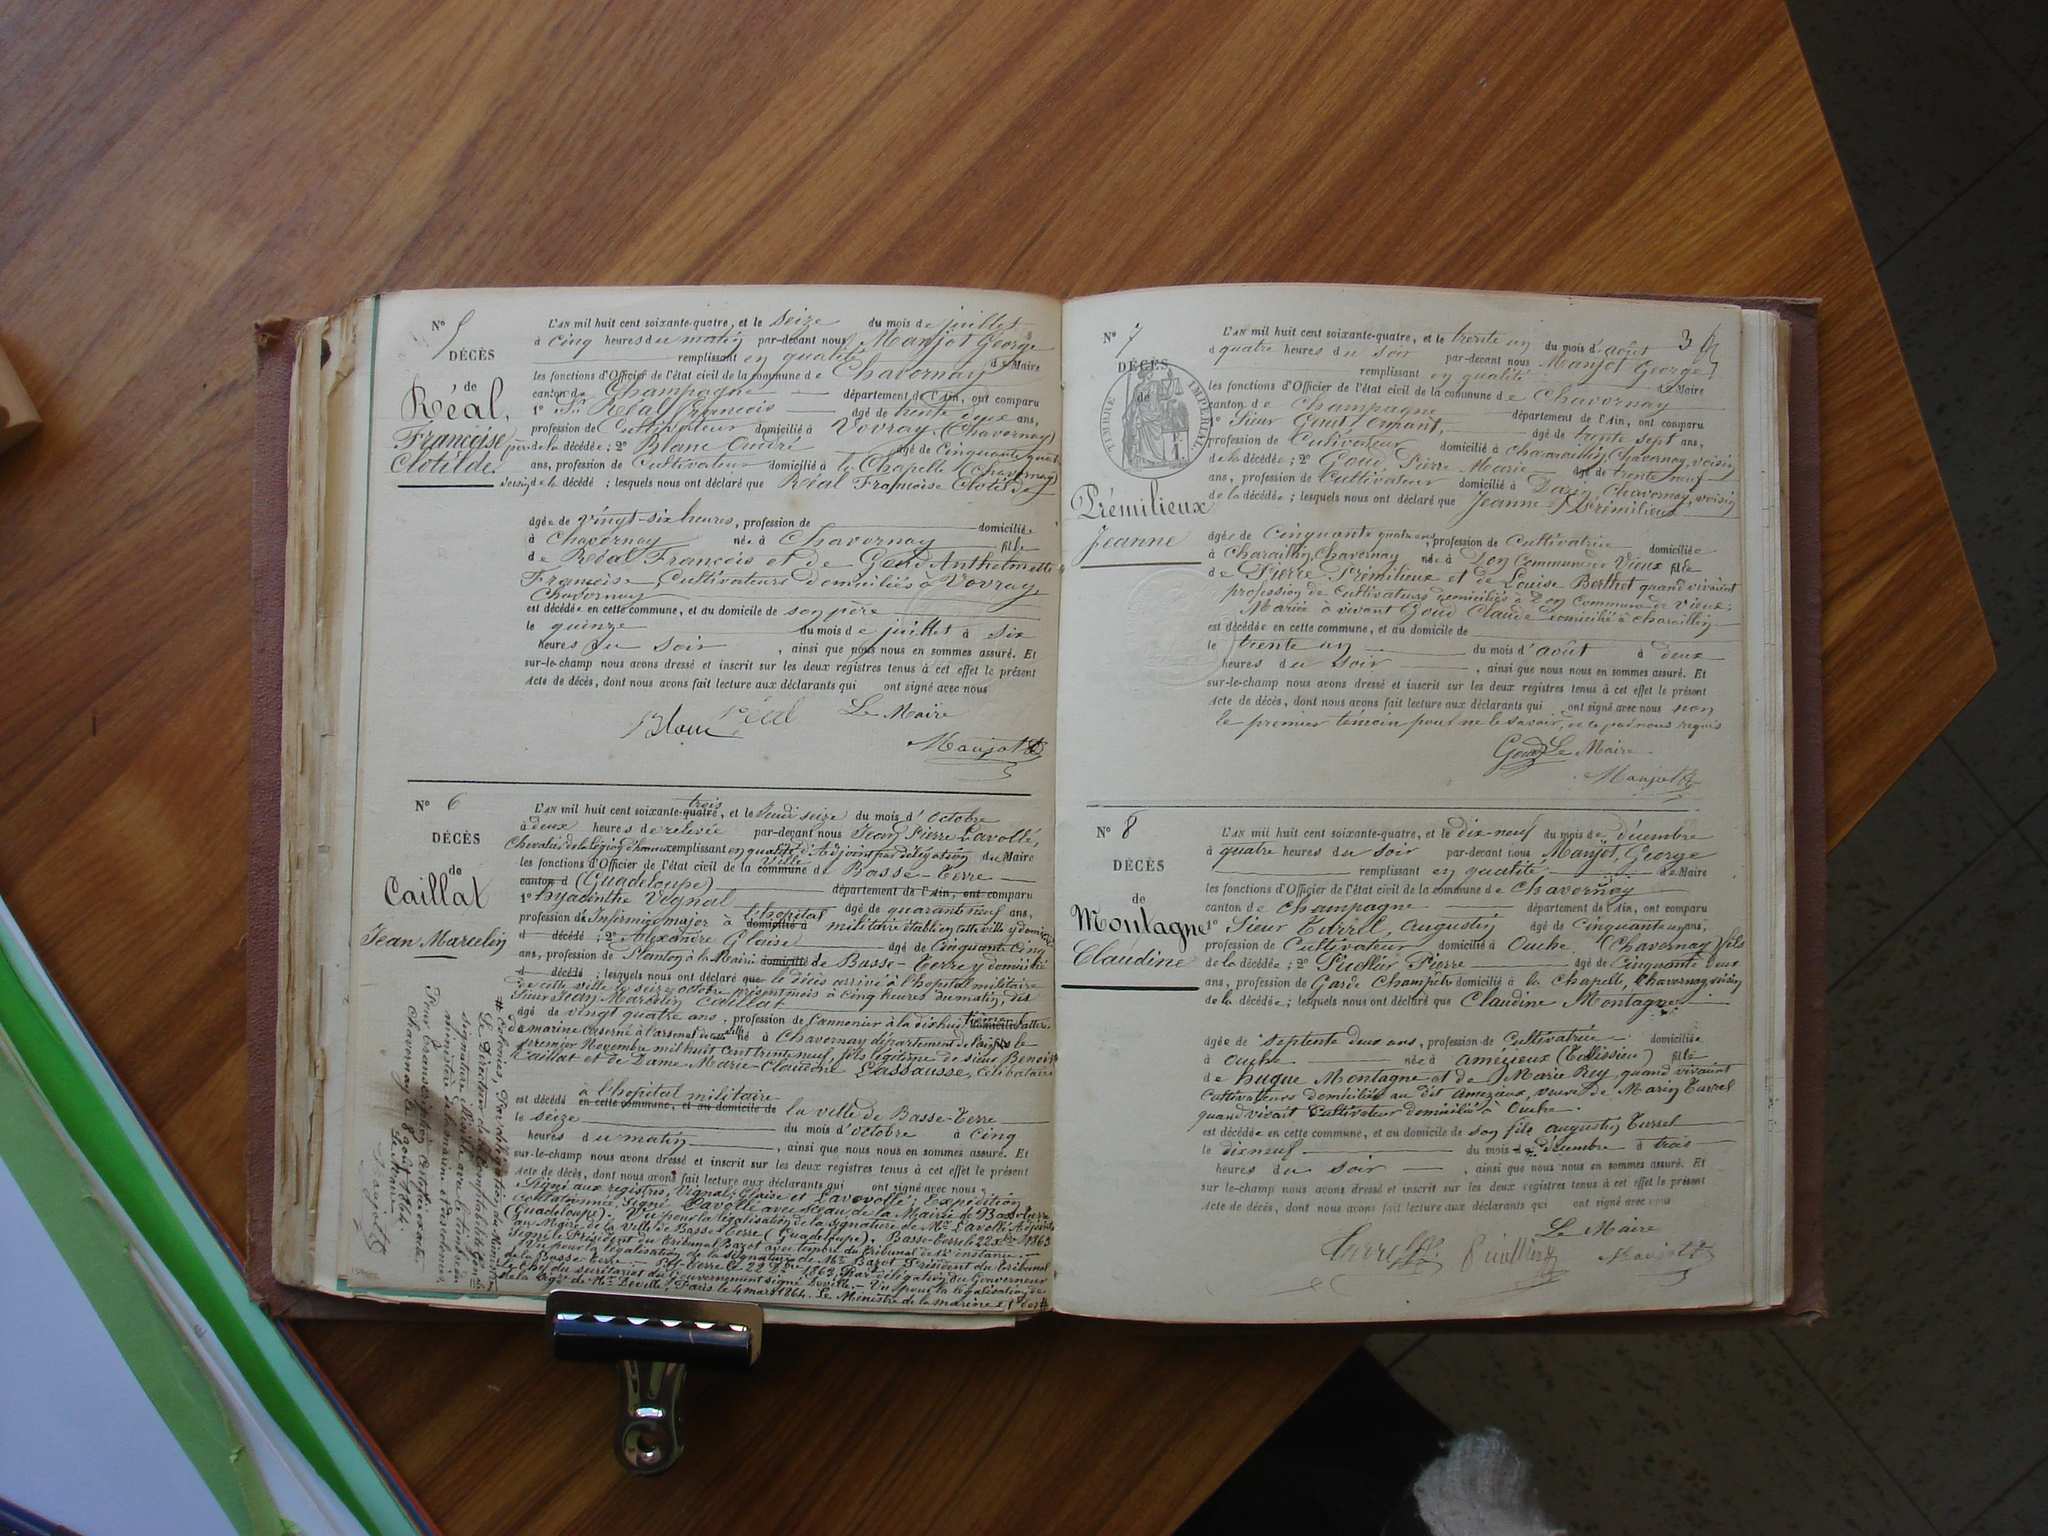 N° 5
DÉCÈS
de
Réal,
Françoise
Clotilde.
L'AN mil huit cent soixante-quatre, et le Seize du mois de juillet
à cinq heures du matin par-devant nous Manjot George
remplissant en qualité de Maire
les fonctions d'Officier de l'état civil de la commune de Chavornay
canton de Champagne département de l'Ain, ont comparu
1° Sr Réal François âgé de trente deux ans,
profession de Cultivateur domicilié à Vovray (Chavornay)
père de la décédée; 2° Blanc André âgé de Cinquante quatre
ans, profession de Cultivateur domicilié à la Chapelle (Chavornay)
voisin de la décédé ; lesquels nous ont déclaré que Réal Françoise Clotilde
âgée de vingt-six heures, profession de domicilié
à Chavornay née à Chavornay fille
de Réal François et de Goud Anthelmette
Françoise, Cultivateurs domiciliés à Vovray,
Chavornay
est décédée en cette commune, et au domicile de son père
le quinze du mois de juillet à six
heures du soir , ainsi que nous nous en sommes assuré. Et
sur-le-champ nous avons dressé et inscrit sur les deux registres tenus à cet effet le présent
Acte de décès, dont nous avons fait lecture aux déclarants qui ont signé avec nous
Blanc Réal Le Maire
Manjot
N° 6
DÉCÈS
de
Caillat
Jean Marcelin
L'AN mil huit cent soixante-quatre trois, et le Lundi seize du mois d'octobre
à deux heures de relevée par-devant nous Jean Pierre Lavollé,
Chevalier de la légion d'honneur remplissant en qualité d'Adjoint par délégation du Maire
les fonctions d'Officier de l'état civil de la commune ville de Basse-Terre
canton d (Guadeloupe) département de l'Ain, ont comparu
1° Hyacinthe Vignal âgé de quarante neuf ans,
profession d'Infirmier major à domicilié à l'hôpital militaire établi en cette ville y domicilié
d décédé ; 2° Alexandre Gloise âgé de Cinquante Cinq
ans, profession de Planton à la Mairie domicilié de Basse-Terre y domicilié
d décédé ; lesquels nous ont déclaré que le décès arrivé à l'hôpital militaire
de cette ville le seize octobre présent mois à cinq heures du matin, du
Sieur Jean Marcelin Caillat
âgé de vingt quatre ans, profession de Cannonier à la dix huitième domicilié batterie
de marine caserné à l'arsenal de cette ville né à Chavornay département de l'ain le
premier Novembre mil huit cent trente neuf, fils légitime de sieur Benoit
Caillat et de Dame Marie Claudine Lassausse, Célibataire
est décédé en cette commune, et au domicile de à l'hopital militaire la ville de Basse-Terre
le seize du mois d'octobre à Cinq
heures du matin , ainsi que nous nous en sommes assuré. Et
sur-le-champ nous avons dressé et inscrit sur les deux registres tenus à cet effet le présent
Acte de décès, dont nous avons fait lecture aux déclarants qui ont signé avec nous.
Signé aux registres, Vignal, Gloise et Lavollé; Expédition
collationnée, Signé Lavollé avec sceau de la Mairie de Basse-terre
(Guadeloupe). Vu pour la légalisation de la signature de Mr Lavollé Adjoint
au Maire de la ville de Basse-Terre (Guadeloupe). Basse-Terre le 22 1863
Signé le Président du tribunal Bazot avec timbre du tribunal de 1e instance.
Vu pour la légalisation de la signature de Mr Bazot Président du tribunal
de la Basse-Terre le 22 1863, Par délégation du Gouverneur
le Chef du secrétariat du Gouvernement signé Leville. Vu pour la légalisation de
la Sign. de Mr Leville, Paris le 4 mars 1864. Le Ministre de la marine et des #
# Colonies, Par délégation du Ministre
Le Directeur de la Comptabilité Gén.le
signature illisible avec le timbre du
ministère de la marine et des colonies,
Pour transcription certifiée exacte
Chavornay, le 8 août 1864.
Le Maire
Manjot
3
N° 7
DÉCÈS
de
TIMBRE IMPÉRIAL
Prémilieux
Jeanne
L'AN mil huit cent soixante-quatre, et le trente un du mois d'août
à quatre heures du soir par-devant nous Manjot George
remplissant en qualité de Maire
les fonctions d'Officier de l'état civil de la commune de Chavornay
canton de Champagne département de l'Ain, ont comparu
1° Sieur Goud Armant, âgé de trente sept ans,
profession de Cultivateur domicilié à Charaillin, Chavornay, voisin
de la décédée ; 2° Goud, Pierre Marie âgé de trente neuf
ans, profession de Cultivateur domicilié à Dazin, Chavornay, voisin
de la décédée ; lesquels nous ont déclaré que Jeanne Prémilieux
âgée de Cinquante quatre ans, profession de Cultivatrice domiciliée
à Charaillin, Chavornay née à Don Commune de Vieux fille
de Pierre Prémilieux et de Louise Berthet quand vivaient
profession de Cultivateurs domiciliés à Don Commune de Vieux;
Mariée à vivant Goud Claude domicilié à Charaillin
est décédée en cette commune, et au domicile de
le trente un du mois d'août à deux
heures du soir , ainsi que nous nous en sommes assuré. Et
sur-le-champ nous avons dressé et inscrit sur les deux registres tenus à cet effet le présent
Acte de décès, dont nous avons fait lecture aux déclarants qui ont signé avec nous non
le premier témoin pour ne le savoir, de ce par nous requis
Goud Le Maire
Manjot
N° 8
DÉCÈS
de
Montagne
Claudine
L'AN mil huit cent soixante-quatre, et le dix-neuf du mois de décembre
à quatre heures du soir par-devant nous Manjot, George
remplissant en qualité de Maire
les fonctions d'Officier de l'état civil de la commune de Chavornay
canton de Champagne département de l'Ain, ont comparu
1° Sieur Turrel, Augustin âgé de Cinquante un ans,
profession de Cultivateur domicilié à Ouche (Chavornay) fils
de la décédée ; 2° Puellier Pierre âgé de Cinquante deux
ans, profession de Garde Champêtre domicilié à la Chapelle, Chavornay, voisin
de la décédée ; lesquels nous ont déclaré que Claudine Montagne
âgée de septante deux ans, profession de Cultivatrice domiciliée
à Ouche née à Amezieux (Tallissieu) fille
de hugue Montagne et de Marie Rey, quand vivaient
Cultivateurs domiciliés au dit Amezieux, veuve de Marin Turrel
quand vivait Cultivateur domicilié à Ouche.
est décédée en cette commune, et au domicile de son fils augustin Turrel
le dix neuf du mois de décembre à trois
heures du soir , ainsi que nous nous en sommes assuré. Et
sur le-champ nous avons dressé et inscrit sur les deux registres tenus à cet effet le présent
Acte de décès, dont nous avons fait lecture aux déclarants qui ont signé avec nous
Le Maire
Turrel Puellier Manjot